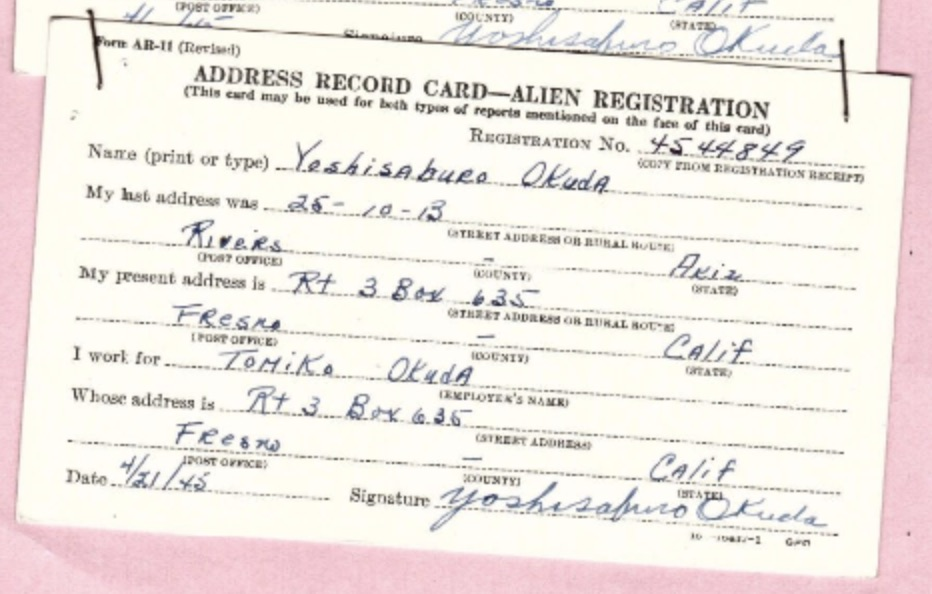 (POST OFFICE) (COUNTY) Calif (STATE)
Signature Yoshisaburo Okuda
Form AR-11 (Revised)
ADDRESS RECORD CARD—ALIEN REGISTRATION
(This card may be used for both types of reports mentioned on the face of this card)
REGISTRATION No. 4544849
(COPY FROM REGISTRATION RECEIPT)
Name (print or type) Yoshisaburo Okuda
My last address was 25-10-13
(STREET ADDRESS OR RURAL ROUTE)
Rivers - Ariz
(POST OFFICE) (COUNTY) (STATE)
My present address is Rt 3 Box 635
(STREET ADDRESS OR RURAL ROUTE)
Fresno - Calif
(POST OFFICE) (COUNTY) (STATE)
I work for Tomiko Okuda
(EMPLOYER'S NAME)
Whose address is Rt 3 Box 635
(STREET ADDRESS)
Fresno - Calif
(POST OFFICE) (COUNTY) (STATE)
Date 4/21/45 Signature Yoshisaburo Okuda
GPO